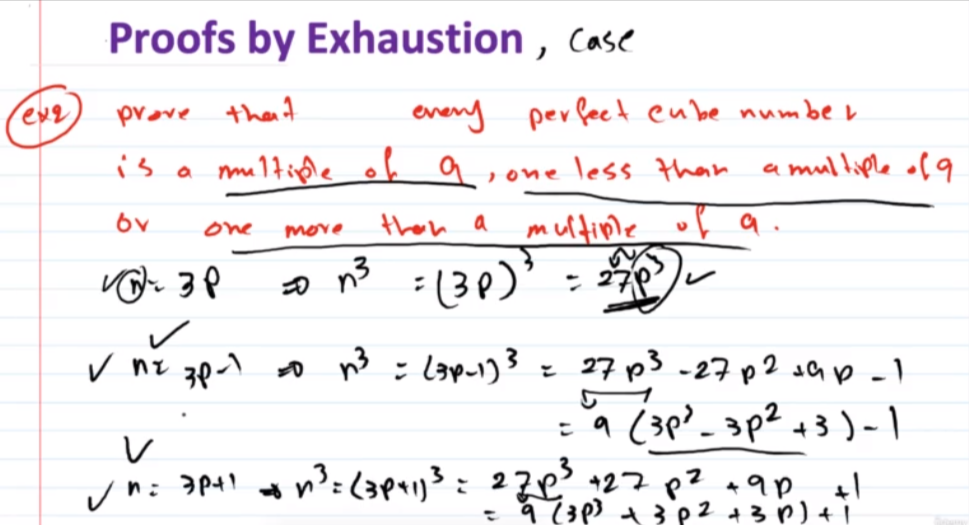 Proofs by Exhaustion , case
ex2 prove that every perfect cube number
is a multiple of 9 , one less than a multiple of 9
or one more than a multiple of 9 .
✓ n = 3p ⇒ n³ = (3p)³ = 27p³ ✓
✓
✓ n = 3p-1 ⇒ n³ = (3p-1)³ = 27p³ - 27p² + 9p - 1
= 9 (3p³ - 3p² + 3) - 1
✓
✓ n = 3p+1 ⇒ n³ = (3p+1)³ = 27p³ + 27p² + 9p + 1
= 9 (3p³ + 3p² + 3p) + 1